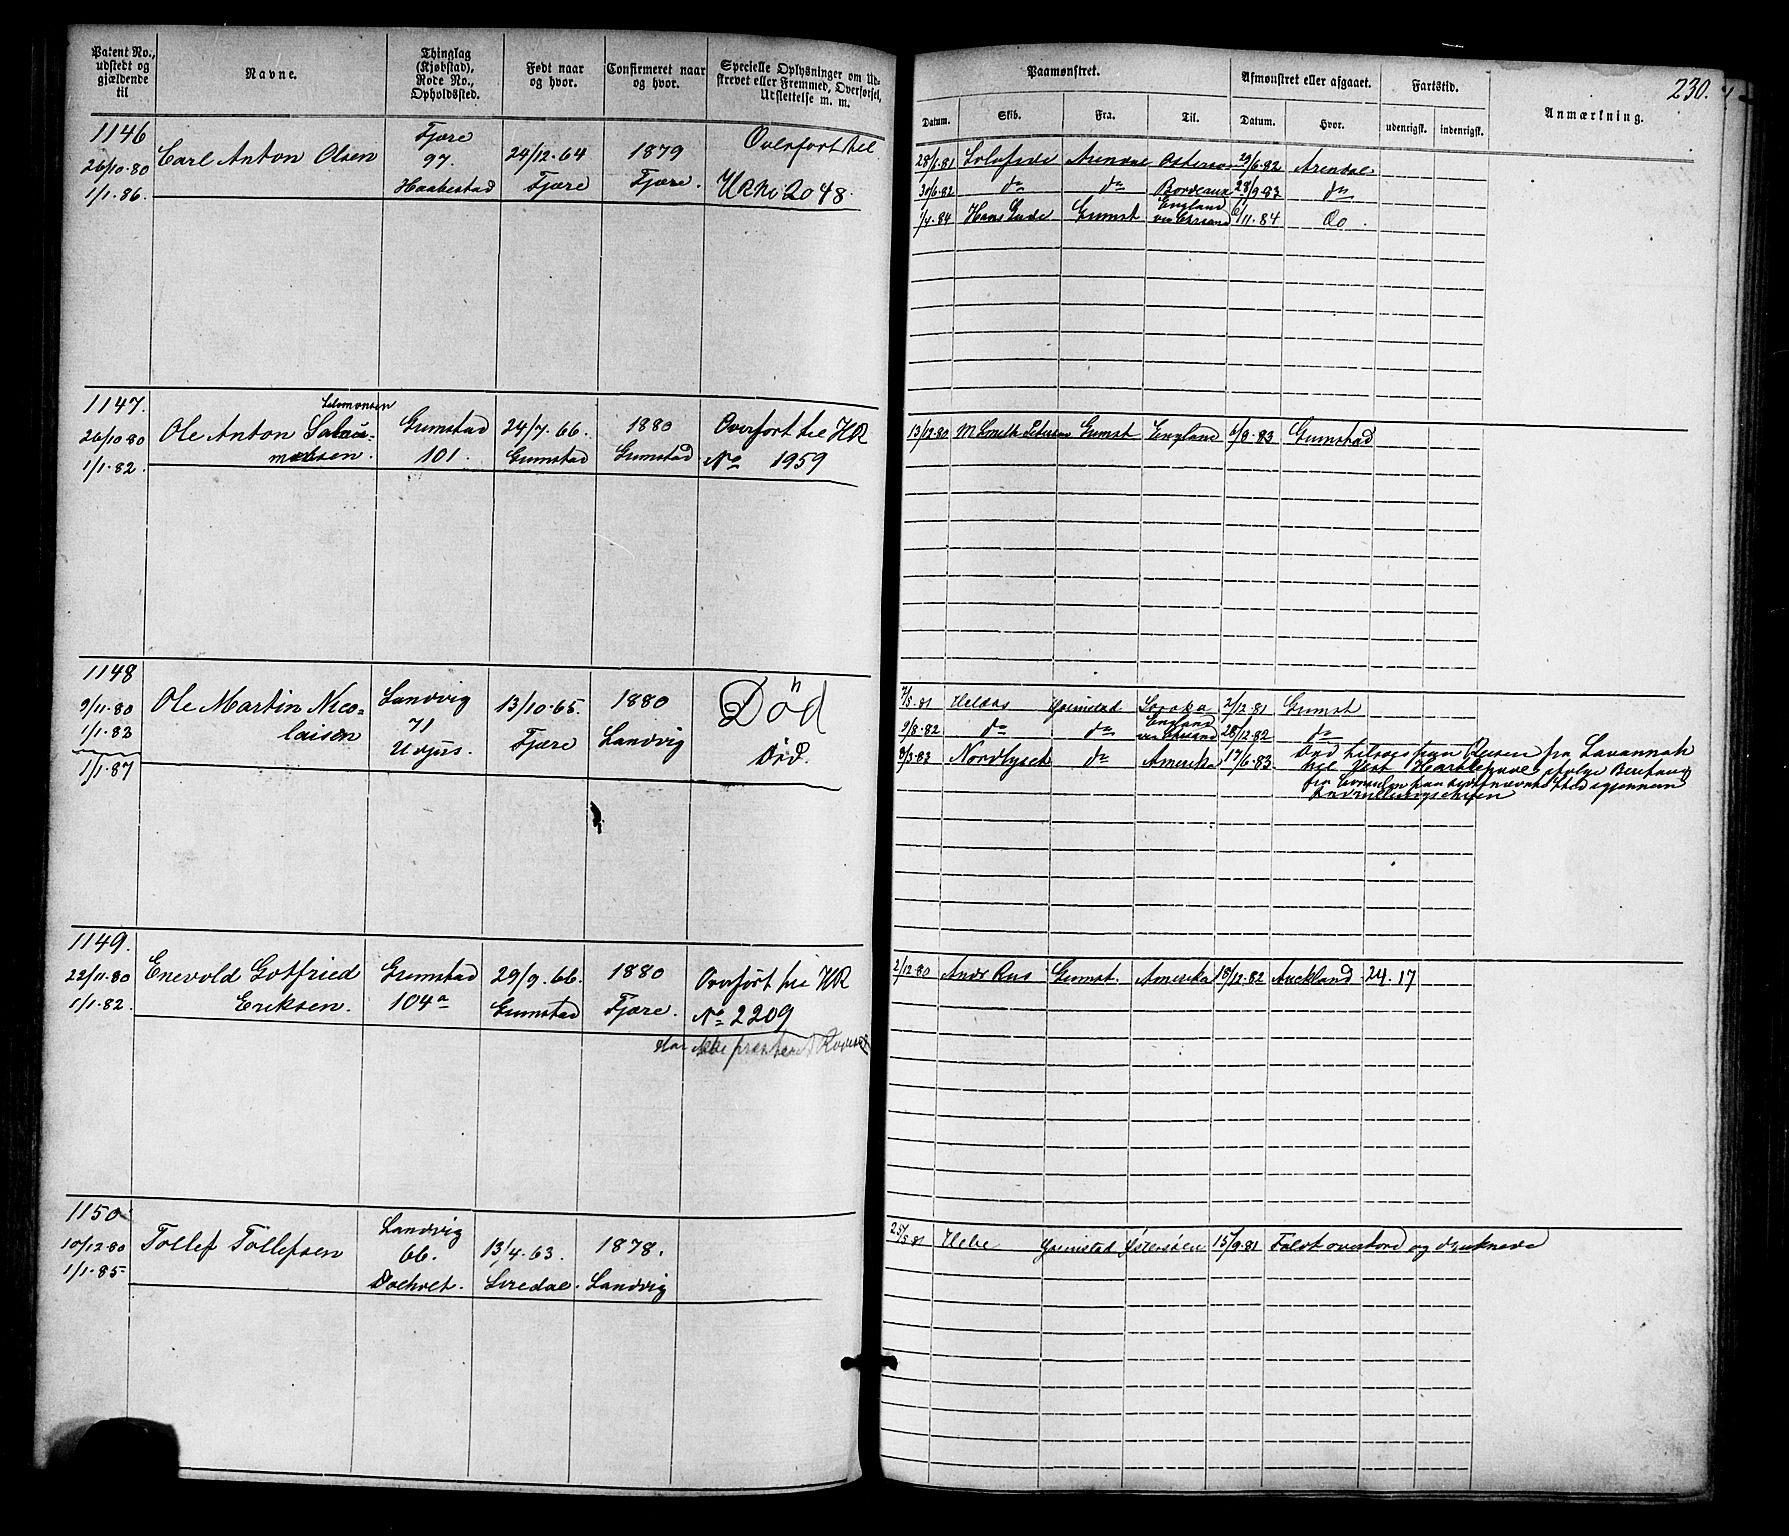 Patent No., udstedt og gjældende til
Navne.
Thinglag (Kjøbstad), Rode No., Opholdssted.
Født naar og hvor.
Confirmeret naar og hvor.
Specielle Oplysninger om Udskrevet eller Fremmed, Overførsel, Udslettelse m. m.
Paamønstret.
Afmønstret eller afgaaet.
Fartstid.
Anmærkning.
230.
Datum.
Skib.
Fra.
Til.
Datum.
Hvor.
udenrigsk.
indenrigsk.
1146
26/10·80
1/1·86.
Carl Anton Olsen
Fjære
97.
Haabestad
24/12·64
Fjære
1879
Fjære.
Overført til
No 2048.
28/1·81 Arendal 29/6·82 Arendal
30/6·82 do do Bordeaux 23/9·83 do
1/4·84 Hans Gude Grimst England 6/11·84 do
1147.
26/10·80
1/1·82.
Salomonsen
Ole Anton
Grimstad
101.
24/7·66.
Grimstad
1880
Grimstad
Overført til HR
No 1959
13/12·80 Grimst England 6/8·83 Grimstad
1148
9/11·80
1/1·83
1/1·87
Ole Martin Nico-
laisen
Landvig
71
13/10·65.
Fjære
1880
Landvig
Død
Død.
7/5·81 Grimstad 2/12·81 Grimst
9/8·82 do do England 28/12·82 do
8/3·83 Nordlyset do Amerika 17/6·83 fra Savannah
til
1149.
22/11·80
1/1·82.
Enevold Gotfried
Eriksen.
Grimstad
104a
29/9·66.
Grimstad
1880
Fjære.
Overført til HR
No 2209
har ikke
2/12·80 Grimst. Amerika 18/12·82 Auckland 24. 17
1150
10/12·80
1/1·85
Tollef Tollefsen
Landvig
66.
13/4·63.
1878.
Landvig
25/5·81 Hebe Grimstad Østersøen 15/9·81 Faldt overbord og druknede